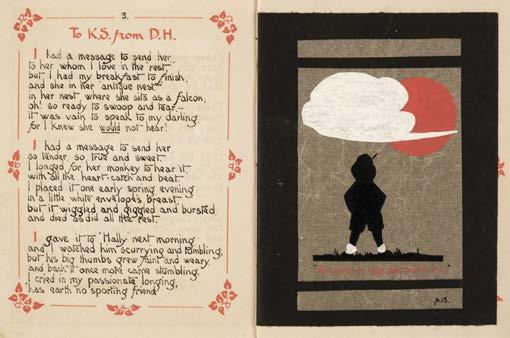 3.
To K.S. from D.H.
I had a message to send her
to her whom I love in the rest
but I had my breakfast to finish,
and she in her antique nest
in her nest where she sits as a falcon,
oh! so ready to swoop and tear
it was vain to speak to my darling
for I knew she would not hear!
I had a message to send her
so tender so true and sweet.
I longed for her monkey to hear it
with all the heart-catch and beat.
I placed it one early spring evening
in a little white envelope's breast
but it wiggled and giggled and bursted
and died as did all the rest.
I gave it to "Hally" next morning
and I watched him scurrying and tumbling,
but his big thumbs grew faint and weary
and back it once more came stumbling
I cried in my passionate longing,
has earth no sporting friend
p.15.